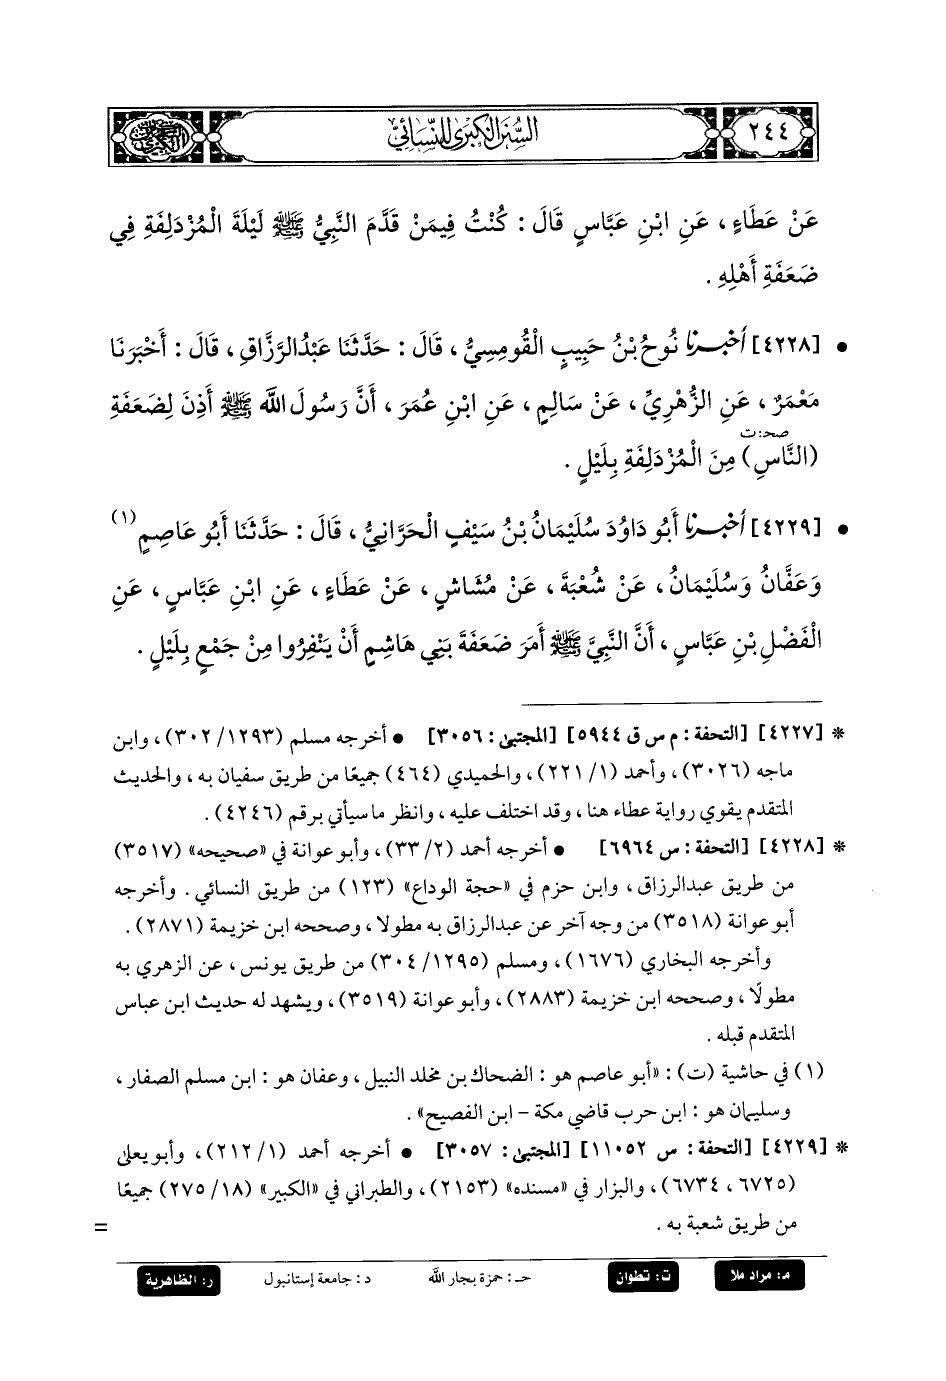 ٢٤٤
السُّنَنُ الكِبْرَىٰ لِلنِّسَائِيِّ
عَنْ عَطَاءٍ، عَنِ ابْنِ عَبَّاسٍ قَالَ: كُنْتُ فِيمَنْ قَدَّمَ النَّبِيُّ ﷺ لَيْلَةَ الْمُزْدَلِفَةِ فِي
ضَعَفَةِ أَهْلِهِ.
• [٤٢٢٨] أخبرنا نُوحُ بْنُ حَبِيبٍ الْقُومِسِيُّ، قَالَ: حَدَّثَنَا عَبْدُالرَّزَّاقِ، قَالَ: أَخْبَرَنَا
مَعْمَرٌ، عَنِ الزُّهْرِيِّ، عَنْ سَالِمٍ، عَنِ ابْنِ عُمَرَ، أَنَّ رَسُولَ اللَّه ﷺ أَذِنَ لِضَعَفَةِ
صحـ: ت
(النَّاسِ) مِنَ الْمُزْدَلِفَةِ بِلَيْلٍ.
• [٤٢٢٩] أخبرنا أَبُو دَاوُدَ سُلَيْمَانُ بْنُ سَيْفٍ الْحَرَّانِيُّ، قَالَ: حَدَّثَنَا أَبُو عَاصِمٍ (١)
وَعَفَّانُ وَسُلَيْمَانُ، عَنْ شُعْبَةَ، عَنْ مُشَاشٍ، عَنْ عَطَاءٍ، عَنِ ابْنِ عَبَّاسٍ، عَنِ
الْفَضْلِ بْنِ عَبَّاسٍ، أَنَّ النَّبِيَّ ﷺ أَمَرَ ضَعَفَةَ بَنِي هَاشِمٍ أَنْ يَنْفِرُوا مِنْ جَمْعٍ بِلَيْلٍ.
* [٤٢٢٧] [التحفة: م س ق ٥٩٤٤] [المجتبى: ٣٠٥٦] • أخرجه مسلم (١٢٩٣/ ٣٠٢)، وابن
ماجه (٣٠٢٦)، وأحمد (١/ ٢٢١)، والحميدي (٤٦٤) جميعًا من طريق سفيان به، والحديث
المتقدم يقوي رواية عطاء هنا، وقد اختلف عليه، وانظر ما سيأتي برقم (٤٢٤٦).
* [٤٢٢٨] [التحفة: س ٦٩٦٤] • أخرجه أحمد (٢/ ٣٣)، وأبو عوانة في «صحيحه» (٣٥١٧)
من طريق عبدالرزاق، وابن حزم في «حجة الوداع» (١٢٣) من طريق النسائي. وأخرجه
أبو عوانة (٣٥١٨) من وجه آخر عن عبدالرزاق به مطولا، وصححه ابن خزيمة (٢٨٧١).
وأخرجه البخاري (١٦٧٦)، ومسلم (١٢٩٥/ ٣٠٤) من طريق يونس، عن الزهري به
مطولًا، وصححه ابن خزيمة (٢٨٨٣)، وأبو عوانة (٣٥١٩)، ويشهد له حديث ابن عباس
المتقدم قبله.
(١) في حاشية (ت): «أبو عاصم هو: الضحاك بن مخلد النبيل، وعفان هو: ابن مسلم الصفار،
وسليمان هو: ابن حرب قاضي مكة - ابن الفصيح».
* [٤٢٢٩] [التحفة: س ١١٠٥٢] [المجتبى: ٣٠٥٧] • أخرجه أحمد (١/ ٢١٢)، وأبو يعلى
(٦٧٢٥، ٦٧٣٤)، والبزار في «مسنده» (٢١٥٣)، والطبراني في «الكبير» (١٨/ ٢٧٥) جميعًا
من طريق شعبة به. =
مـ: مراد ملا ت: تطوان حـ: حمزة بجار اللَّه د: جامعة إستانبول ر: الظاهرية